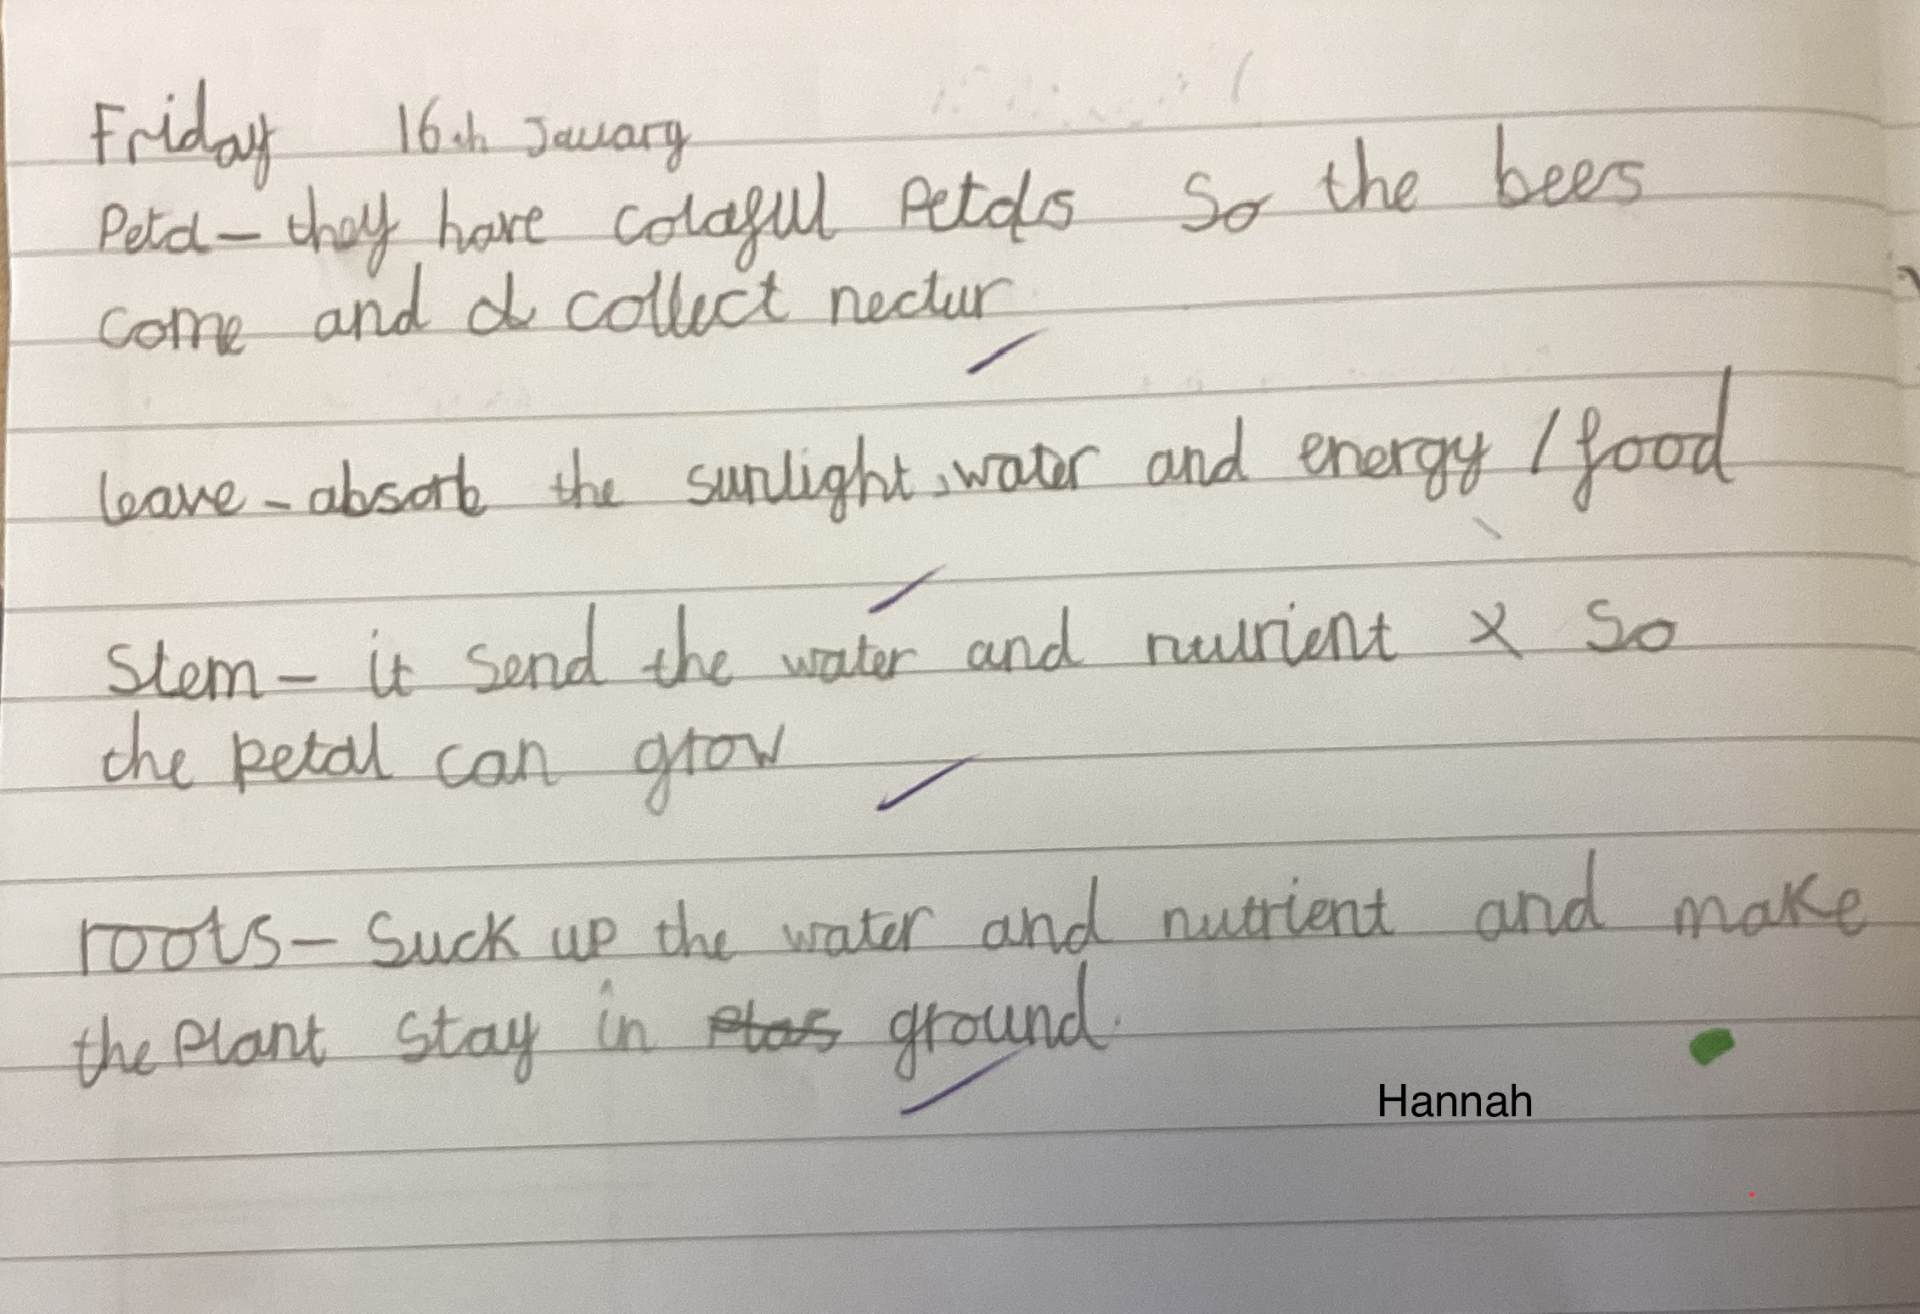 Friday 16th January
Petal - they have colaful Petals So the bees
come and collect nectur
leave - absorb the sunlight, water and energy / food
Stem - it send the water and nutrient x So
the petal can grow
roots - Suck up the water and nutrient and make
the Plant stay in ground.
Hannah